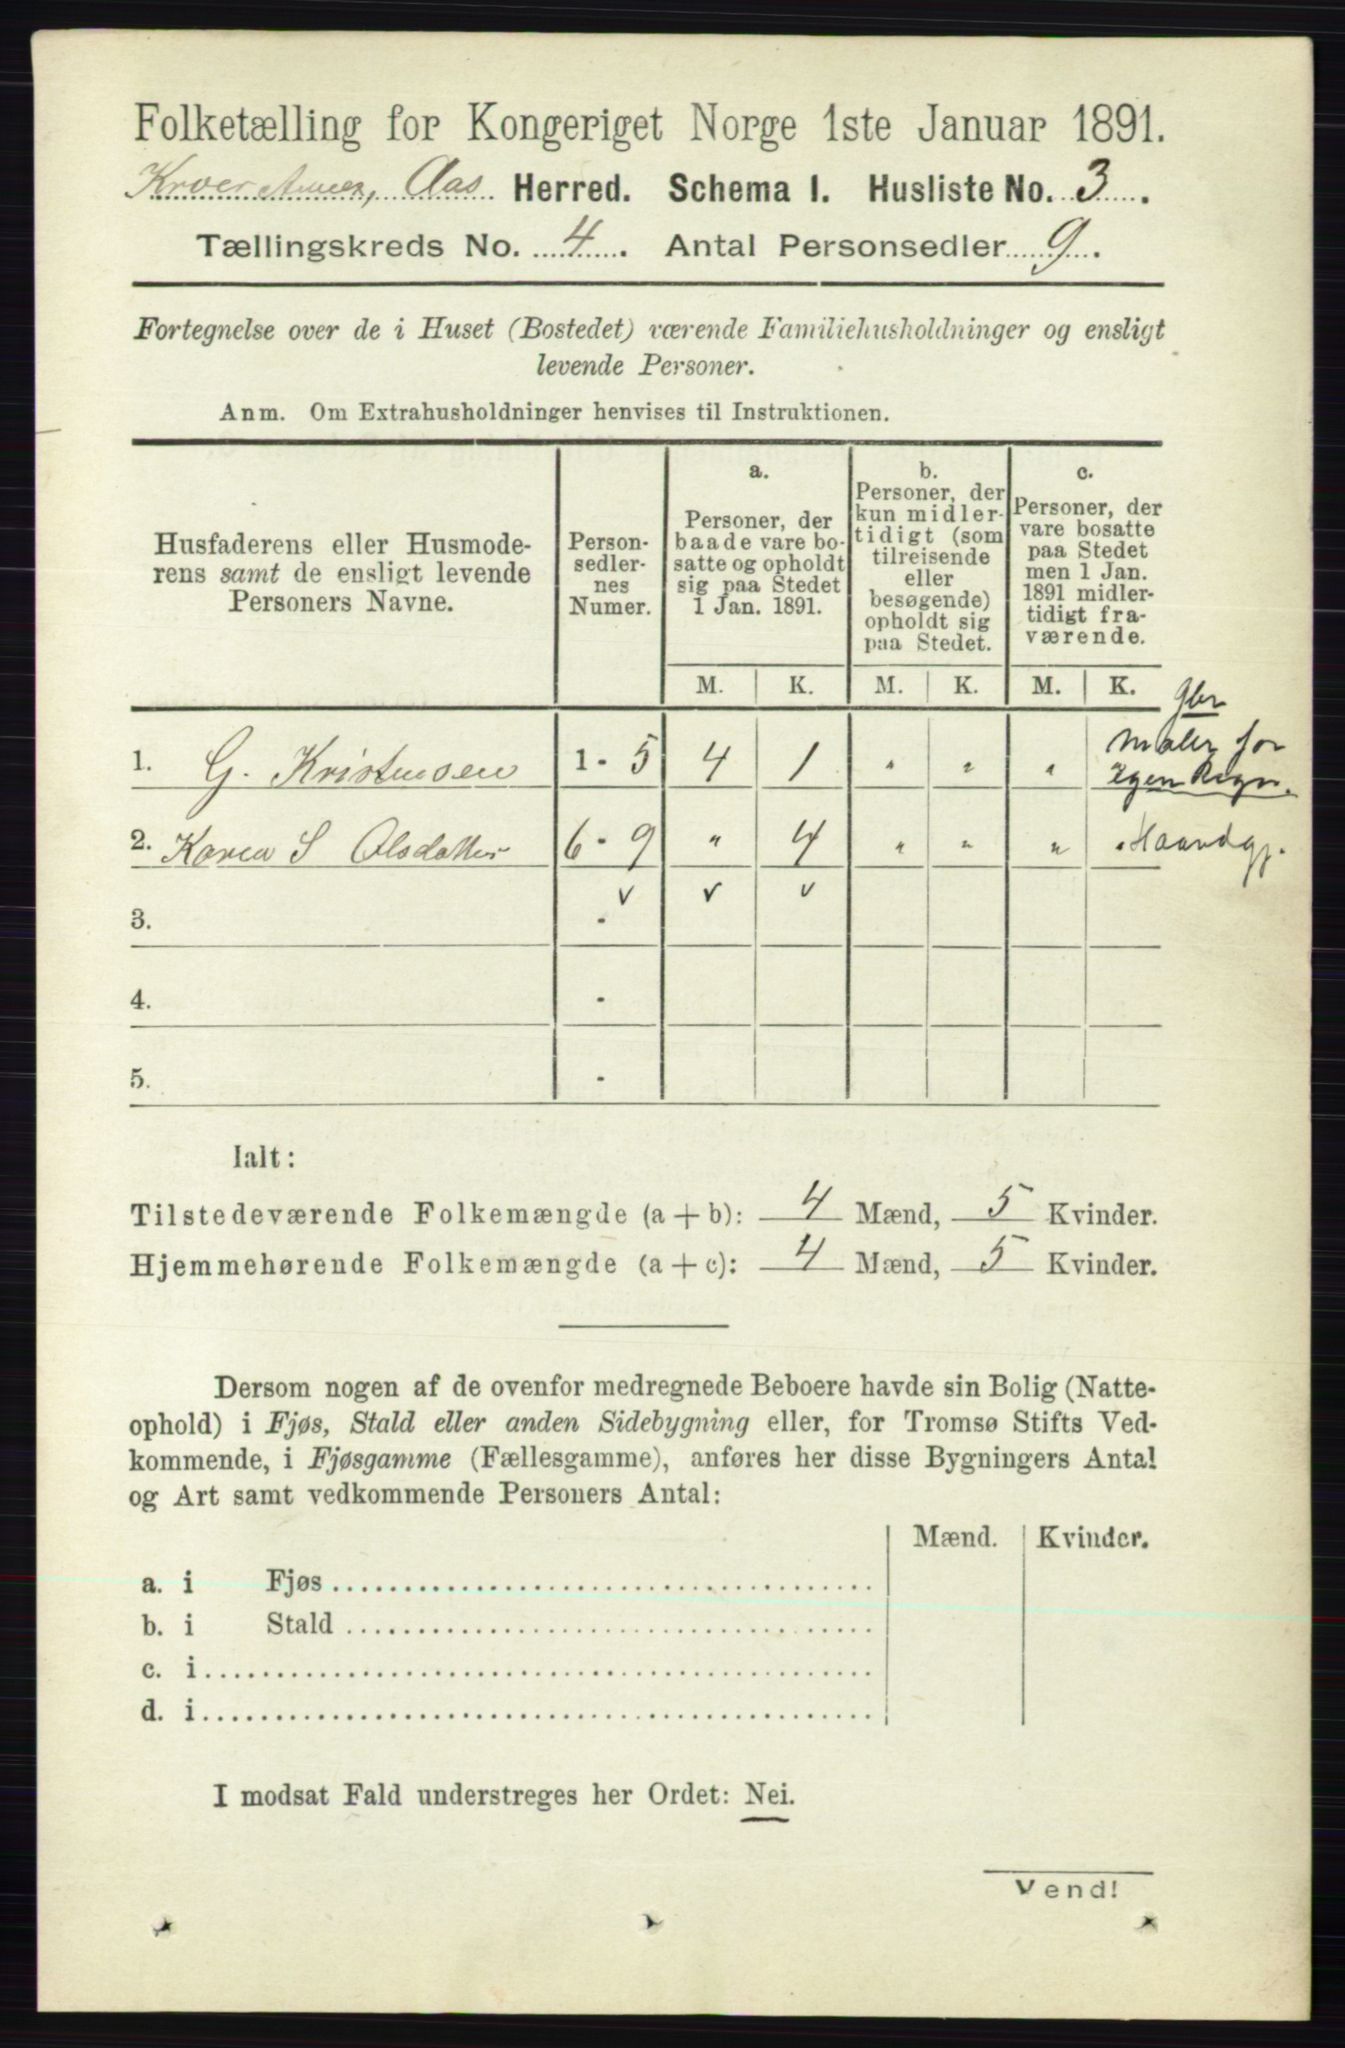 Folketælling for Kongeriget Norge 1ste Januar 1891.
Kroer Annex, Aas Herred. Schema 1. Husliste No. 3.
Tællingskreds No. 4. Antal Personsedler 9.
Fortegnelse over de i Huset (Bostedet) værende Familiehusholdninger og ensligt
levende Personer.
Anm. Om Extrahusholdninger henvises til Instruktionen.
Husfaderens eller Husmode-
rens samt de ensligt levende
Personers Navne.
Person-
sedler-
nes
Numer.
a.
Personer, der
baade vare bo-
satte og opholdt
sig paa Stedet
1 Jan. 1891.
b.
Personer, der
kun midler-
tidigt (som
tilreisende
eller
besøgende)
opholdt sig
paa Stedet.
c.
Personer, der
vare bosatte
paa Stedet
men 1 Jan.
1891 midler-
tidigt fra-
værende.
M. K. M. K. M. K.
Gbr
Maler for
egen Regn.
1. G. Kristensen 1 - 5 4 1 " " "
2. Karen S Olsdatter 6 - 9 " 4 " " " " Haandgj.
v v v
3. -
4. -
5. -
Ialt:
Tilstedeværende Folkemængde (a + b): 4 Mænd, 5 Kvinder.
Hjemmehørende Folkemængde (a + c): 4 Mænd, 5 Kvinder.
Dersom nogen af de ovenfor medregnede Beboere havde sin Bolig (Natte-
ophold) i Fjøs, Stald eller anden Sidebygning eller, for Tromsø Stifts Ved-
kommende, i Fjøsgamme (Fællesgamme), anføres her disse Bygningers Antal
og Art samt vedkommende Personers Antal:
Mænd. Kvinder.
a. i Fjøs
b. i Stald
c. i
d. i
I modsat Fald understreges her Ordet: Nei.
Vend!